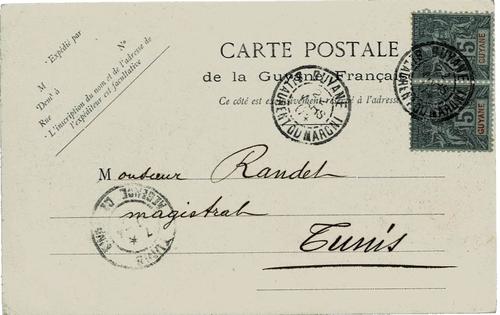 Expédié par
M
Demt à
Rue
No
L'inscription du nom et de l'adresse de
l'expéditeur est facultative
CARTE POSTALE
de la Guyane Française
Ce côté est exclusivement réservé à l'adresse
GUYANE
ST LAURENT DU MARONI
5
GUYANE
5
GUYANE
GUYANE
ST LAURENT DU MARONI
Monsieur Randet
magistrat
Tunis